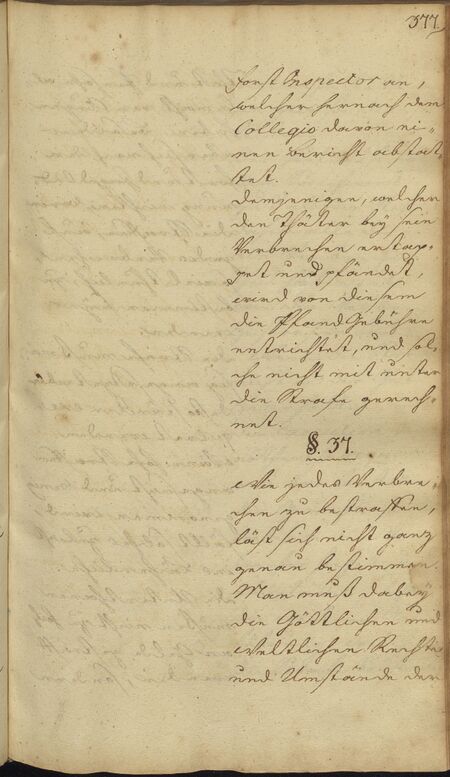 377.
Forst Inspector an,
welcher hernach dem
Collegio davon ei-
nen Bericht abstat-
tet.
Demjenigen, welcher
den Thäter bey sein
Verbrechen ertap-
pet und pfändet,
wird von diesem
die Pfand Gebühre
entrichtet, und sol-
che nicht mit unter
die Strafe gerech-
net.
§. 37.
Wie jedes Verbre-
chen zu bestraffen,
läst sich nicht ganz
genau bestimmen.
Man muß dabey
die Göttlichen und
Weltlichen Rechte
und Umstände der